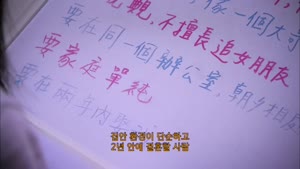 像一個大
覥,不擅長追女朋友
要在同一個辦公室,朝夕相
要家庭單純
要在兩年內
집안 환경이 단순하고
2년 안에 결혼할 사람